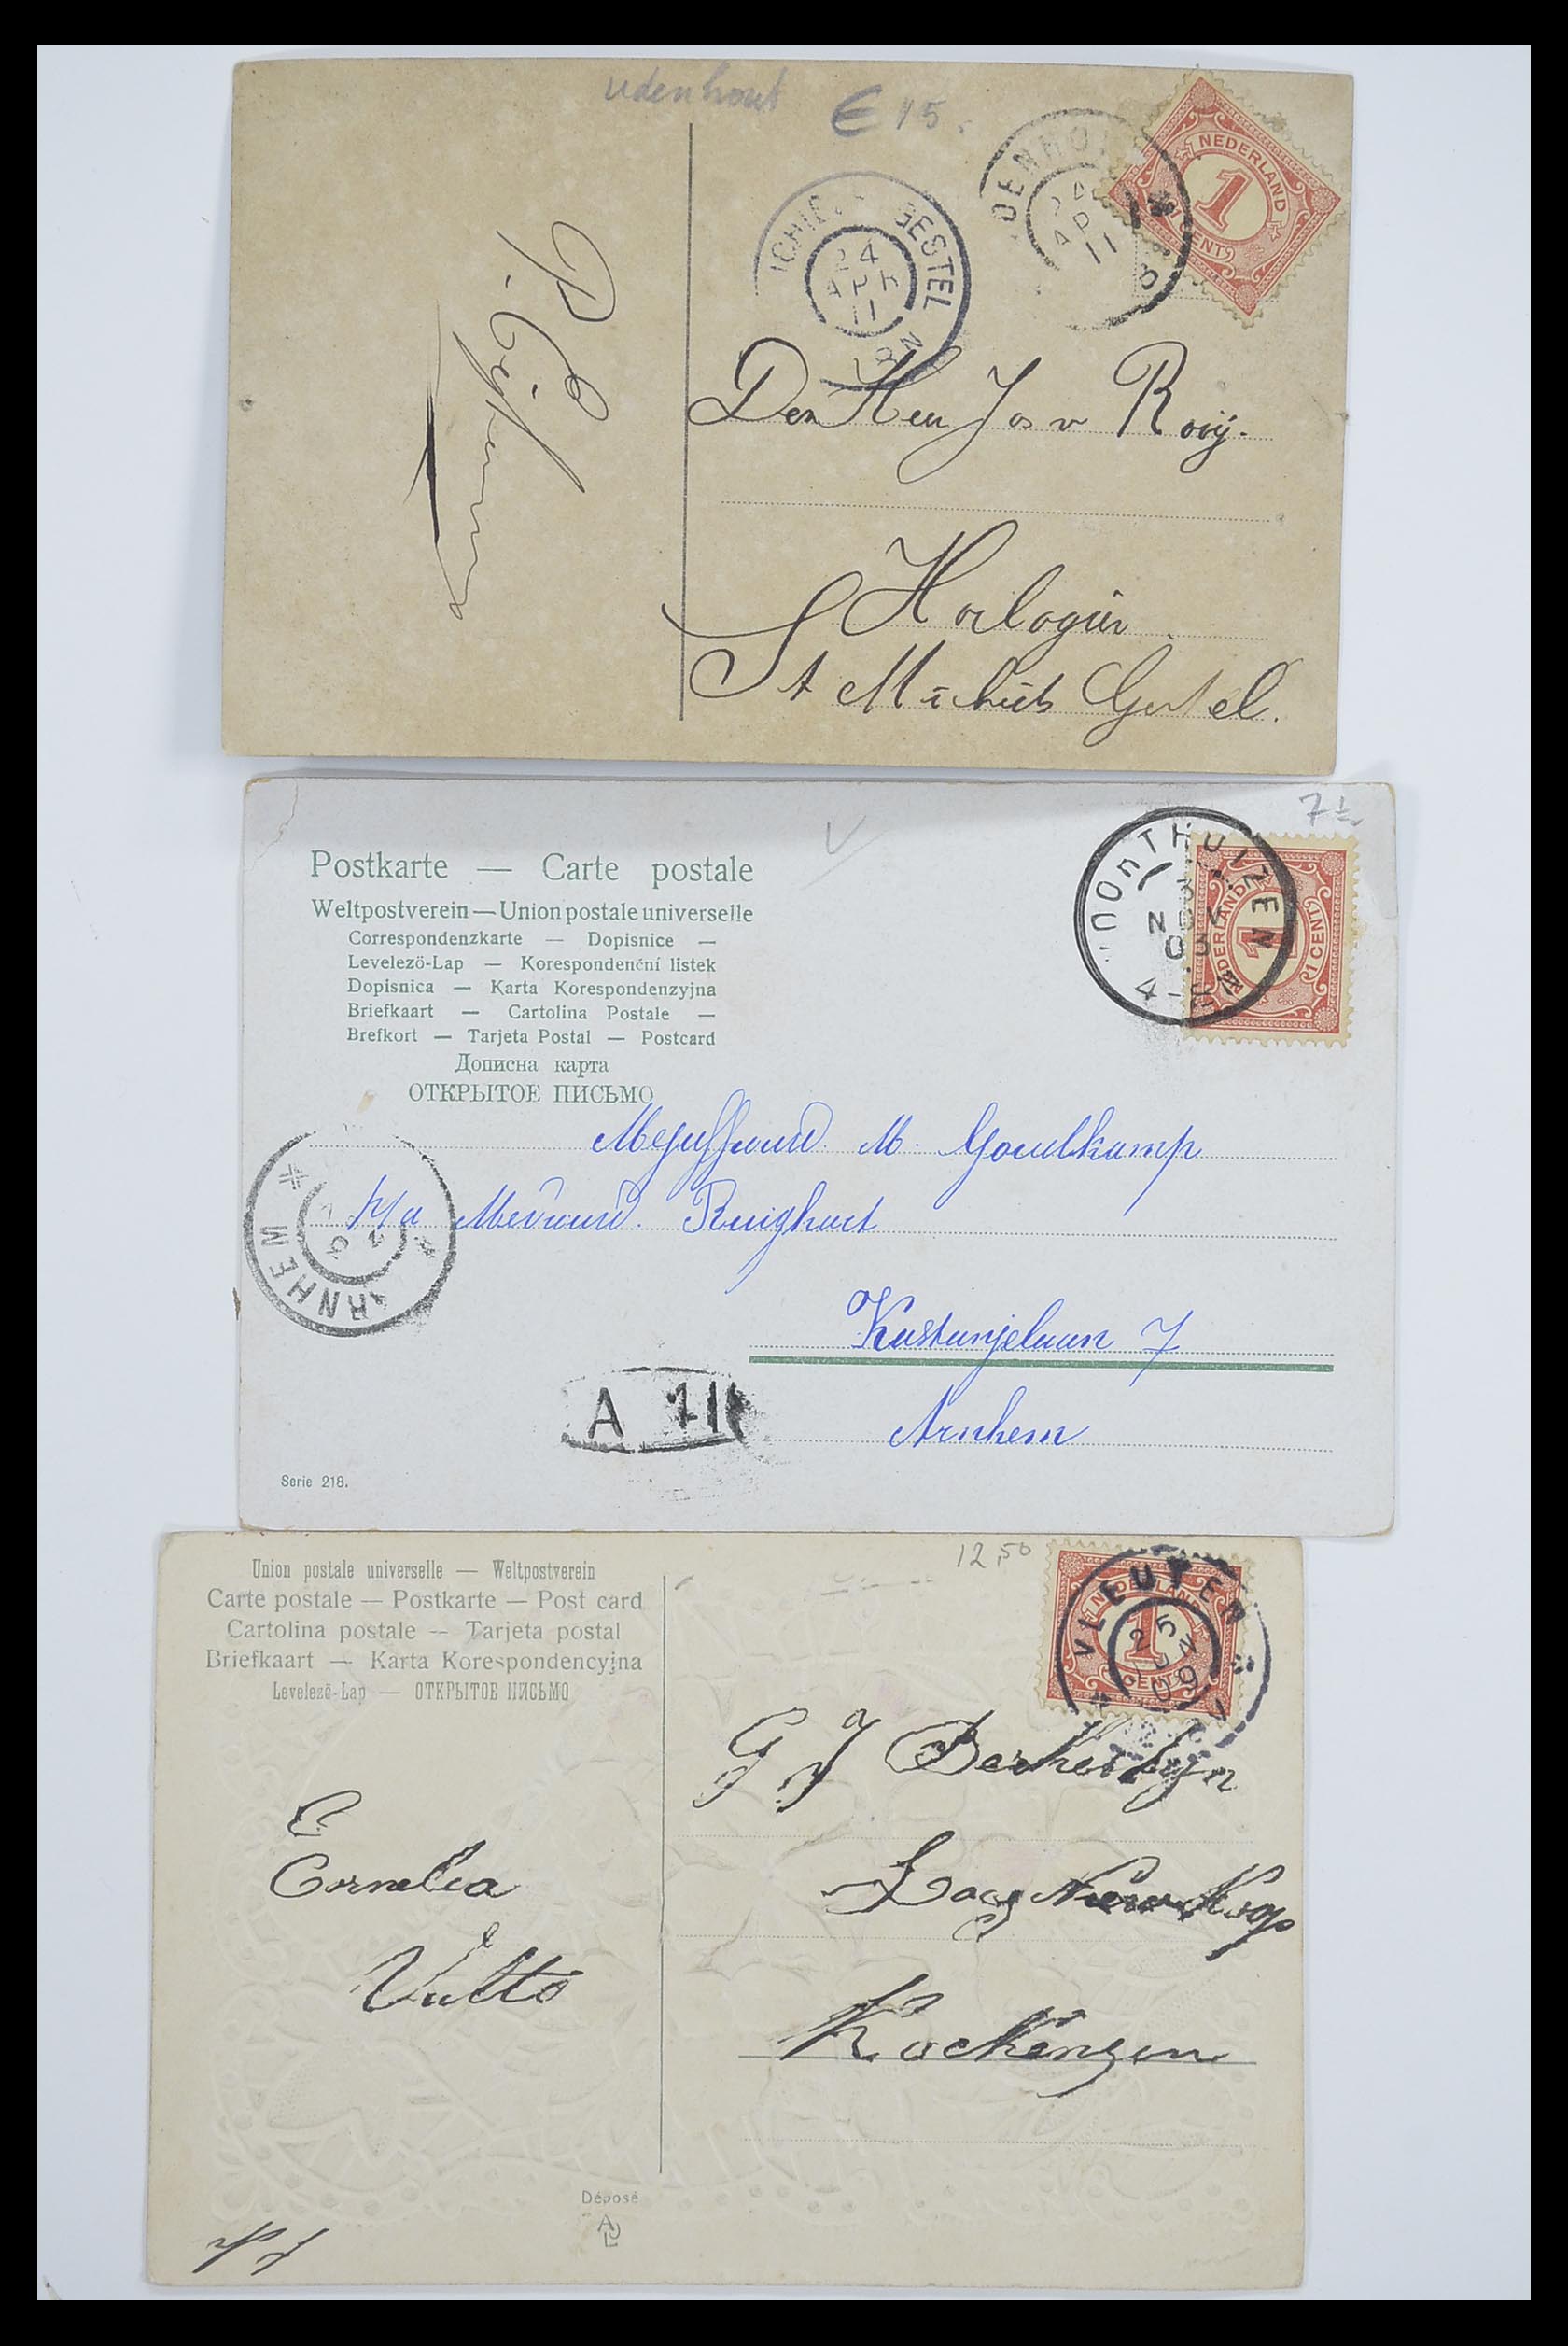 udenhout € 15.
DENHO
24
AP
11
3
NEDERLAND
1
CENT
ICHIE GESTEL
24
APR
11
8 N
P.
Den Heer Jos v Rooij.
Horlogier
St Michiels Gestel.
7½
Postkarte — Carte postale
Weltpostverein — Union postale universelle
Correspondenzkarte — Dopisnice —
Levelező-Lap — Korespondenční listek
Dopisnica — Karta Korespondenzyjna
Briefkaart — Cartolina Postale —
Brefkort — Tarjeta Postal — Postcard
Дописна карта
ОТКРЫТОЕ ПИСЬМО
THUIZEN
3
NOV
03
NEDERLAND
1
1 CENT
Mejuffrouw M. Goudkamp
p/a Mevrouw. Ruighart
ARNHEM
Kastanjelaan 7
A 11
Arnhem
Serie 218.
12,50
Union postale universelle — Weltpostverein
Carte postale — Postkarte — Post card
Cartolina postale — Tarjeta postal
Briefkaart — Karta Korespondencyjna
Levelező-Lap — ОТКРЫТОЕ ПИСЬМО
NEDERLAND
1
CENT
VLEUTEN
25
JUN
09
G J Berkestijn
Laag Nieuwkoop
Kockengen
C
Cornelia
Vulto
Déposé